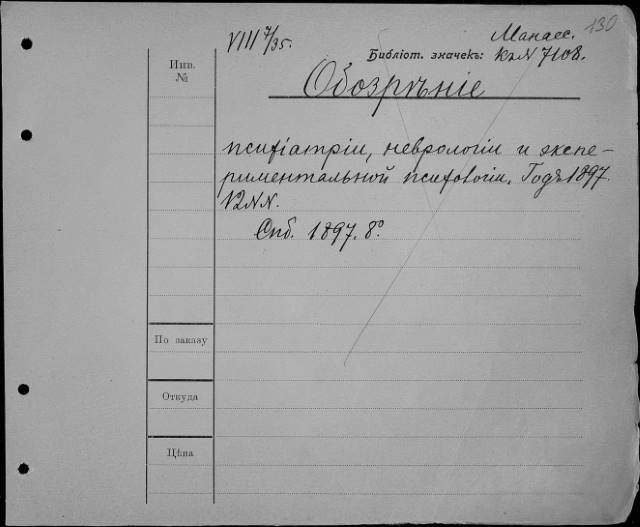 130
VIII 7/35.
Манасс.
Библіот. значекъ: К. № 7108.
Инв.
№
Обозрѣніе
психіатріи, неврологіи и экспе-
риментальной психологіи. Годъ 1897.
12 №№.
Спб. 1897. 8º
По заказу
Откуда
Цѣна